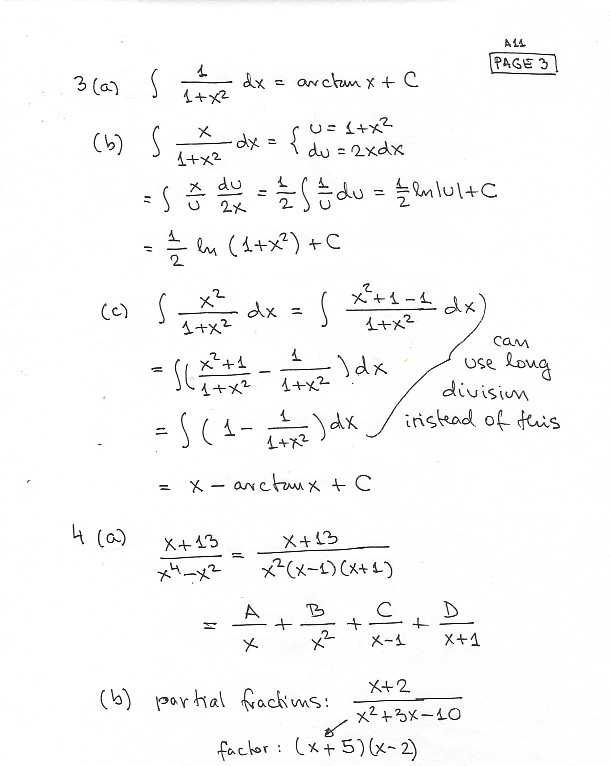 A11
PAGE 3
3(a) ∫ 1/(1+x²) dx = arctan x + C
(b) ∫ x/(1+x²) dx = { u = 1+x²
du = 2xdx
= ∫ x/u du/2x = 1/2 ∫ 1/u du = 1/2 ln|u| + C
= 1/2 ln (1+x²) + C
(c) ∫ x²/(1+x²) dx = ∫ (x²+1-1)/(1+x²) dx
= ∫( (x²+1)/(1+x²) - 1/(1+x²) ) dx
= ∫ ( 1 - 1/(1+x²) ) dx
can
use long
division
instead of this
= x - arctan x + C
4 (a) (x+13)/(x⁴-x²) = (x+13)/(x²(x-1)(x+1))
= A/x + B/x² + C/(x-1) + D/(x+1)
(b) partial fractions: (x+2)/(x²+3x-10)
factor: (x+5)(x-2)